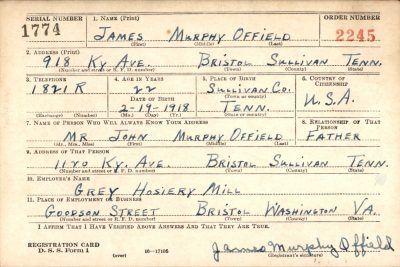 SERIAL NUMBER 1. NAME (Print) ORDER NUMBER
1774 JAMES MURPHY OFFIELD 2245
(First) (Middle) (Last)
2. ADDRESS (Print)
918 KY AVE. BRISTOL SULLIVAN TENN.
(Number and street or R. F. D. number) (Town) (County) (State)
3. TELEPHONE 4. AGE IN YEARS 5. PLACE OF BIRTH 6. COUNTRY OF CITIZENSHIP
1821 R 22 SULLIVAN CO.
DATE OF BIRTH (Town or county)
2-19-1918 TENN. U.S.A.
(Exchange) (Number) (Mo.) (Day) (Yr.) (State or country)
7. NAME OF PERSON WHO WILL ALWAYS KNOW YOUR ADDRESS 8. RELATIONSHIP OF THAT PERSON
MR JOHN MURPHY OFFIELD FATHER
(Mr., Mrs., Miss) (First) (Middle) (Last)
9. ADDRESS OF THAT PERSON
1120 KY. AVE. BRISTOL SULLIVAN TENN.
(Number and street or R. F. D. number) (Town) (County) (State)
10. EMPLOYER'S NAME
GREY HOSIERY MILL
11. PLACE OF EMPLOYMENT OR BUSINESS
GOODSON STREET BRISTOL WASHINGTON VA.
(Number and street or R. F. D. number) (Town) (County) (State)
I AFFIRM THAT I HAVE VERIFIED ABOVE ANSWERS AND THAT THEY ARE TRUE.
REGISTRATION CARD James Murphy Offield
D. S. S. Form 1 (over) 16-17105 (Registrant's signature)